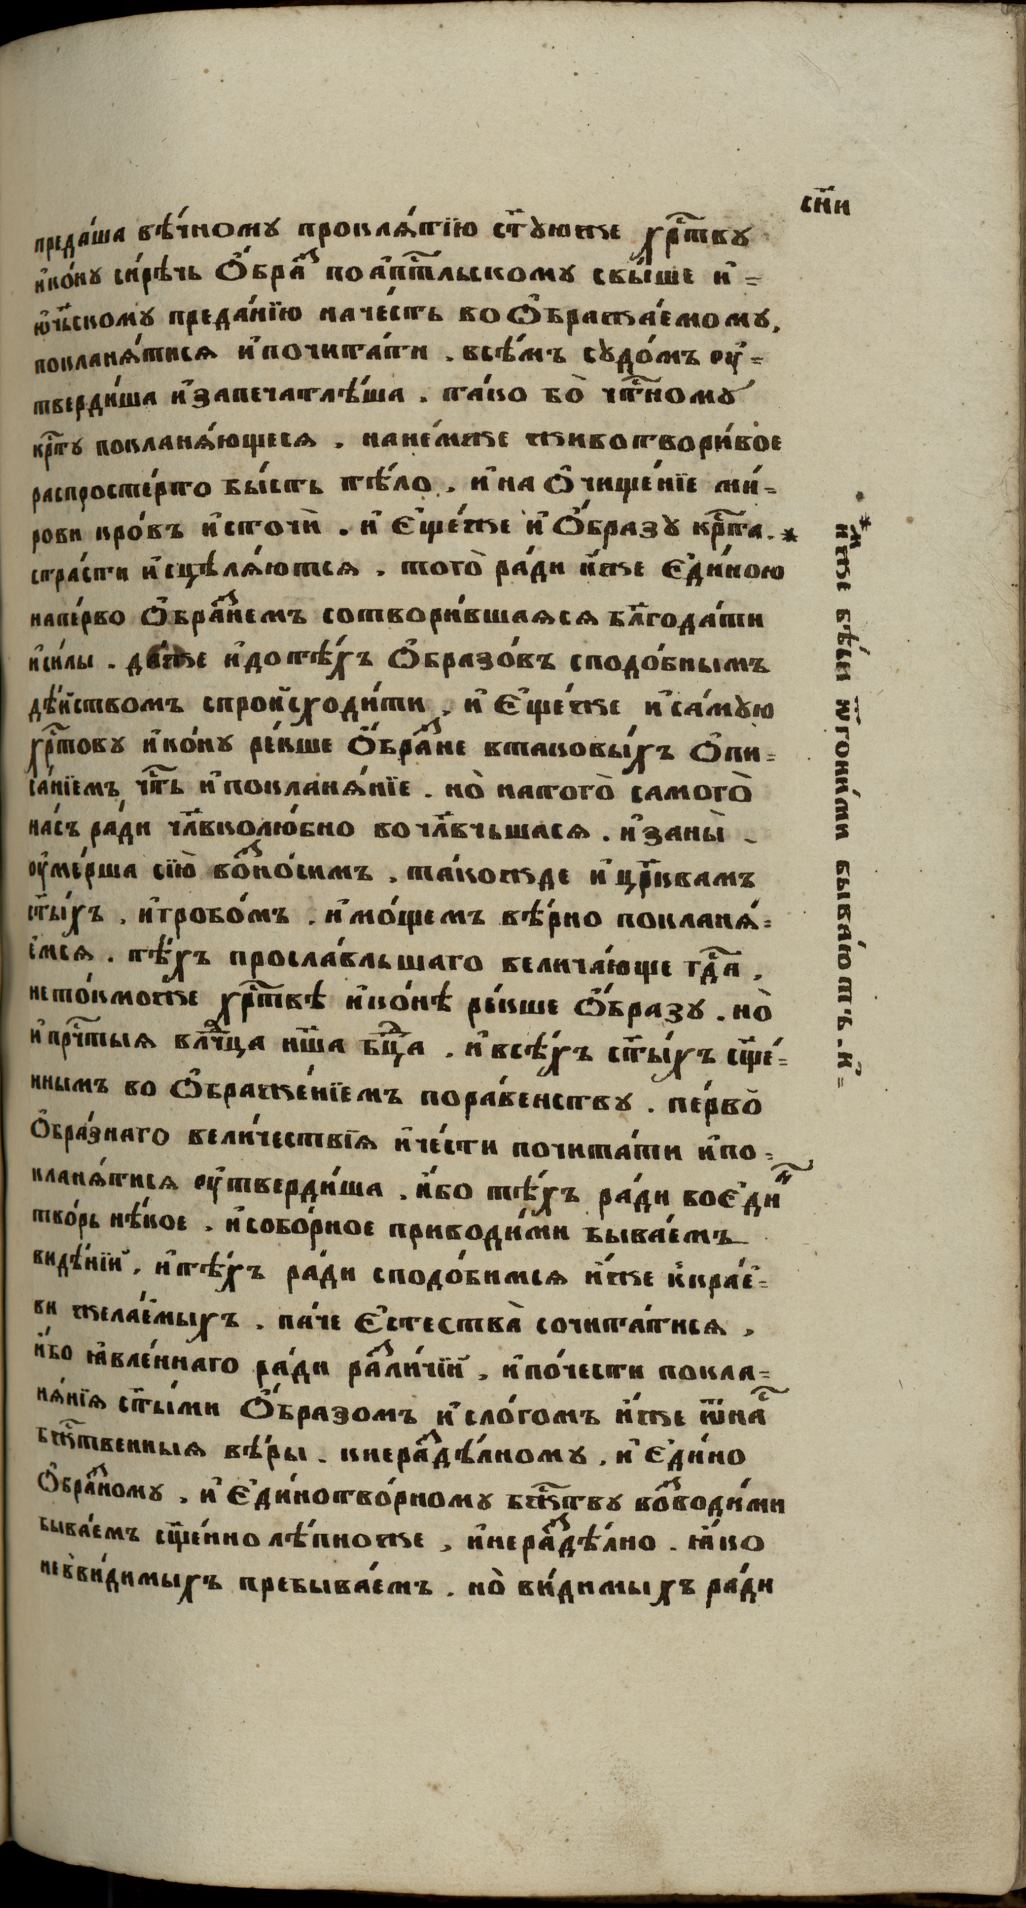 сн҃и
преда́ша вѣ́чному прокля́тїю ст҃ꙋюже хрⷭ҇тву
и҆ко́ну си́рѣчь Ѻ҆́браⷥ по а҆пⷭ҇тльскому свы́ше и҆ =
ѿчь҃скому преда́нїю на че́сть во Ѻ҆бража́емому,
покланя́тися и҆ почита́ти . всѣ́мъ сꙋдо́мъ оу҆ =
тверди́ша и҆ запечатлѣ́ша . та́ко бо̀ чтⷭ҇ному
крⷭ҇ту покланя́ющеся . на не́мже животвори́вое
распросте́рто бы́сть тѣ́ло , и҆ на Ѻ҆чище́нїе ми́ =
рови кро́въ и҆сточѝ . и҆ Є҆ще́же и҆ Ѻ҆́бразꙋ крⷭ҇та . *
стра́сти и҆сцѣля́ются . того̀ ра́ди и҆́же Є҆ди́ною
напе́рво Ѻ҆браⷥ́нїемъ сотвори́вшаяся бл҃года́ти
и҆ си́лы . да́же и҆ до тѣ́хъ Ѻ҆бразо́въ сподо́бнымъ
дѣ́йством спроисходи́ти , и҆ Є҆ще́же и҆ са́мꙋю
хрⷭ҇тову и҆ко́ну ре́кше Ѻ҆́браⷥне в таковы́хъ Ѻ҆пи =
са́нїемъ чтⷭ҇ь и҆ покланя́нїе . но̀ на того̀ самого̀
на́съ ра́ди чл҃вколю́бно во чл҃вчьшася . и҆ за ны̀
оу҆ме́рша сїю̀ воⷥно́симъ . та́кожде и҆ цр҃квамъ
ст҃ы́хъ , и҆ гробо́мъ . и҆ мо́щемъ вѣ́рно покланя́ =
емся . тѣ́хъ просла́вльшаго велича́юще гдⷭ҇а ,
не то́кможе хрⷭ҇твѣ и҆ко́нѣ ре́кше Ѻ҆́бразу . но̀
и҆ прчⷭ҇тыя влⷣчца нш҃а бцⷣа . и҆ всѣ́хъ ст҃ы́хъ сщ҃е́ =
ннымъ во Ѻ҆браже́нїемъ по ра́венству . пе́рво̀
Ѻ҆бра́знаго вели́чествїя и҆ че́сти почита́ти и҆ по =
кланя́тися оу҆тверди́ша . и҆́бо тѣ́хъ ра́ди во Є҆диⷩ
тво́рь нѣ́кое . и҆ собо́рное приводи́ми быва́емъ
видѣ́нїи , и҆ тѣ́хъ ра́ди сподо́бимся и҆́же к кра́е =
ви жела́емыхъ . па́че Є҆стества̀ сочита́тися ,
и҆́бо ꙗ҆вле́ннаго ра́ди раⷥли́чїи , и҆ по́чести покла =
ня́нїя ст҃ы́ми Ѻ҆́бразом и҆ сло́гомъ и҆́же ѿ на́ⷭ
бжⷭ҇твенныя вѣ́ры . к нераⷥдѣ́лному , и҆ Є҆ди́но
Ѻ҆браⷥ́ному , и҆ Є҆динотво́рному бжⷭ҇тву воⷥводи́ми
быва́емъ сщ҃е́ннолѣ́пноже , и҆ нераⷥдѣ́лно . ꙗ҆́ко
не в ви́димыхъ пребыва́емъ . но̀ ви́димыхъ ра́ди
* и҆́мже бѣ́си ѿгони́ми быва́ютъ . и҆ =